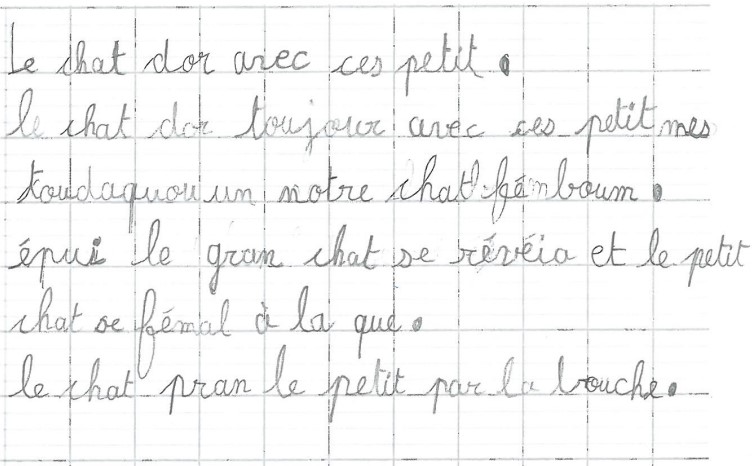 Le chat dor avec ces petit.
le chat dor toujour avec ces petit mes
toudaquou un notre chat fémboum.
épui le gran chat se révéia et le petit
chat se fémal à la que.
le chat pran le petit par la bouche.